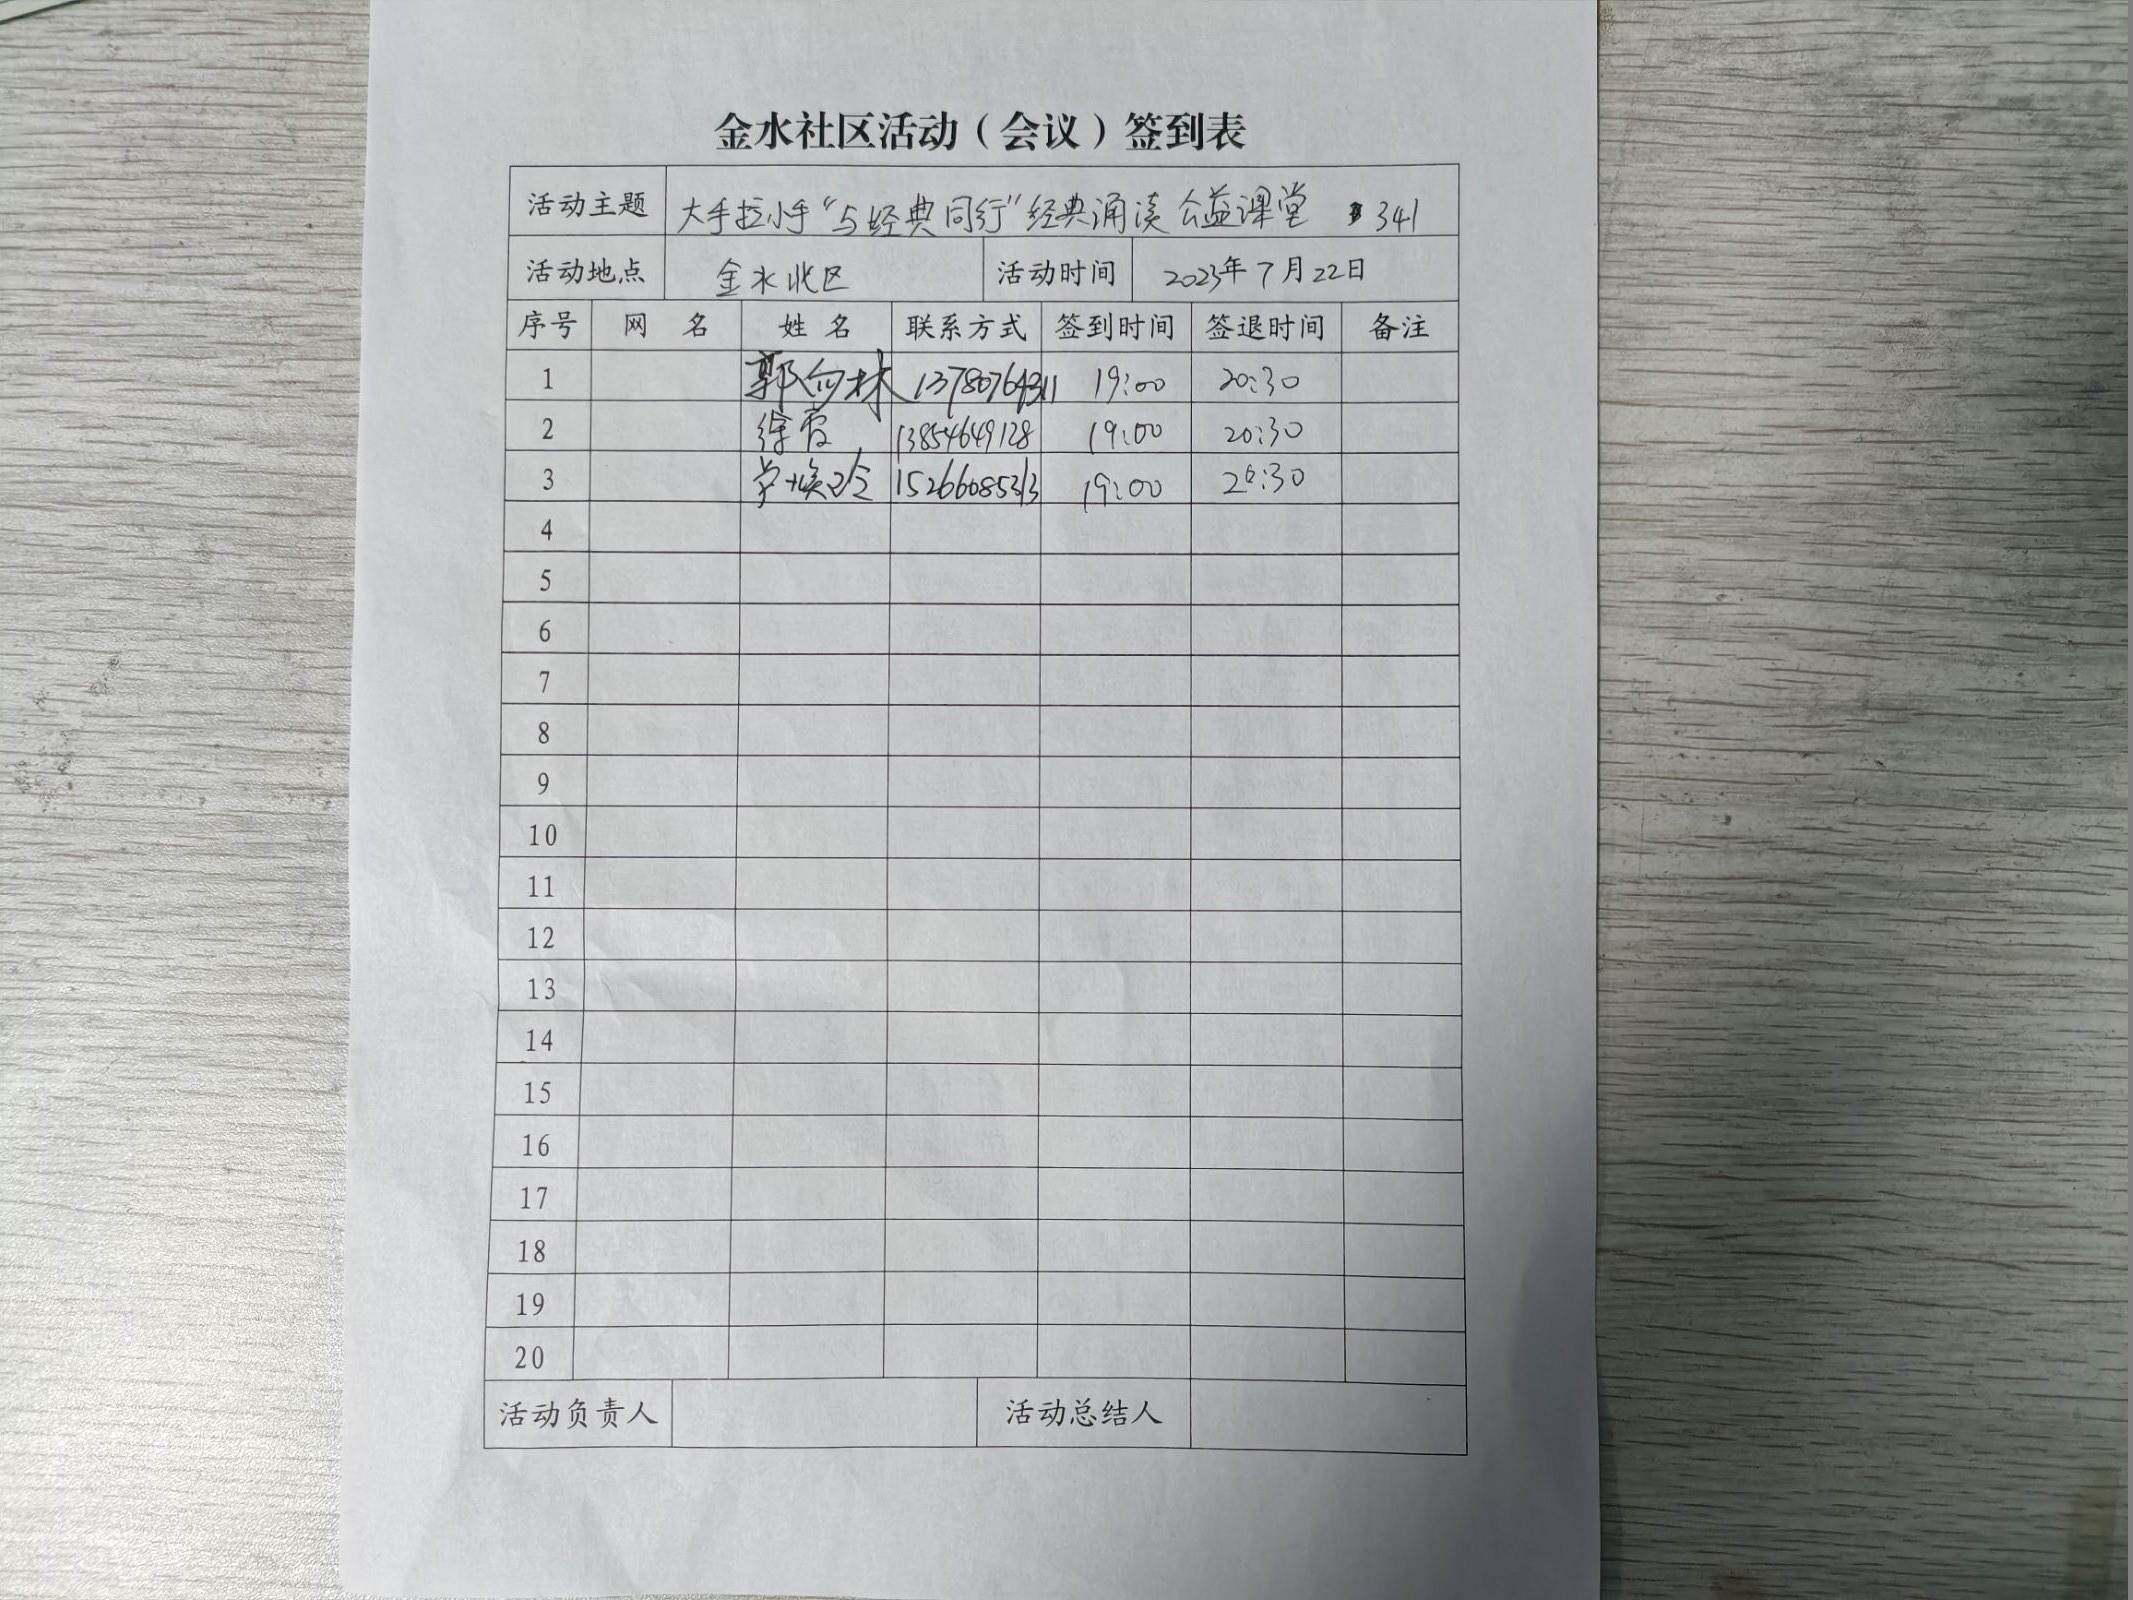 金水社区活动（会议）签到表
活动主题 大手拉小手“与经典同行”经典诵读公益课堂 341
活动地点 金水北区 活动时间 2023年7月22日
序号 网 名 姓 名 联系方式 签到时间 签退时间 备注
1 郭向林 13780764311 19:00 20:30
2 徐霞 13854649128 19:00 20:30
3 15266085313 19:00 20:30
4
5
6
7
8
9
10
11
12
13
14
15
16
17
18
19
20
活动负责人 活动总结人